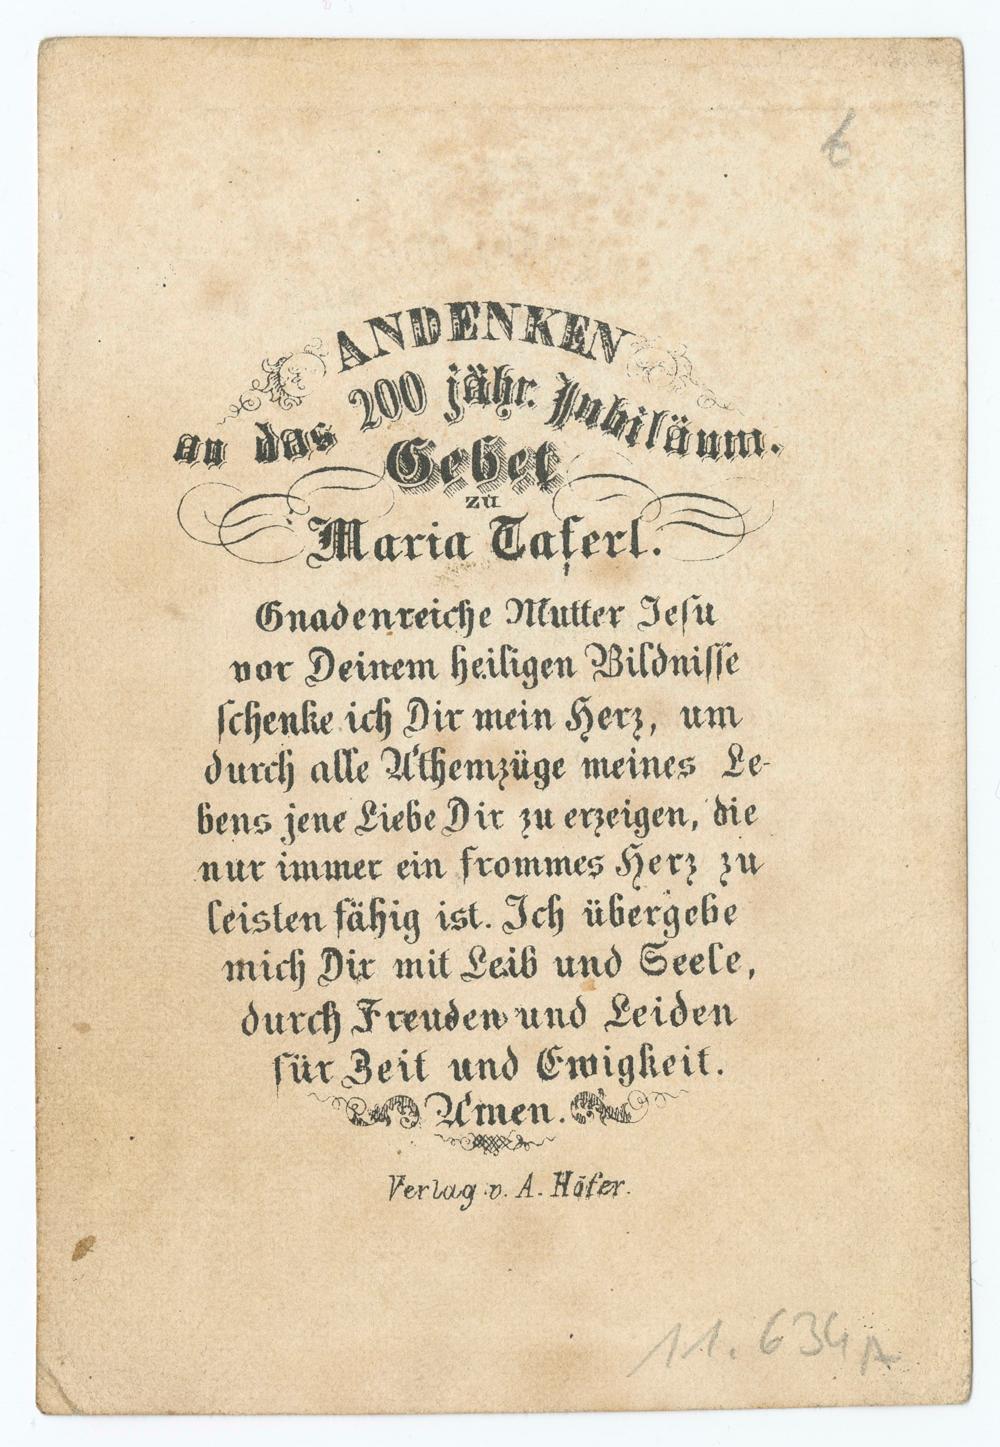 6
ANDENKEN
an das 200 jähr. Jubiläum.
Gebet
zu
Maria Taferl.
Gnadenreiche Mutter Jesu
vor Deinem heiligen Bildnisse
schenke ich Dir mein Herz, um
durch alle Athemzüge meines Le-
bens jene Liebe Dir zu erzeigen, die
nur immer ein frommes Herz zu
leisten fähig ist. Ich übergebe
mich Dir mit Leib und Seele,
durch Freuden und Leiden
für Zeit und Ewigkeit.
Amen.
Verlag v. A. Höfer.
11.634A